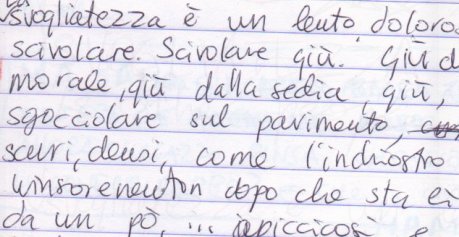 svogliatezza è un lento doloro
scivolare. Scivolare giù. Giù d
morale, giù dalla sedia, giù,
sgocciolare sul pavimento,
scuri, densi, come l'inchiostro
winsorenewton dopo che sta lì
da un pò, ... appiccicosi e